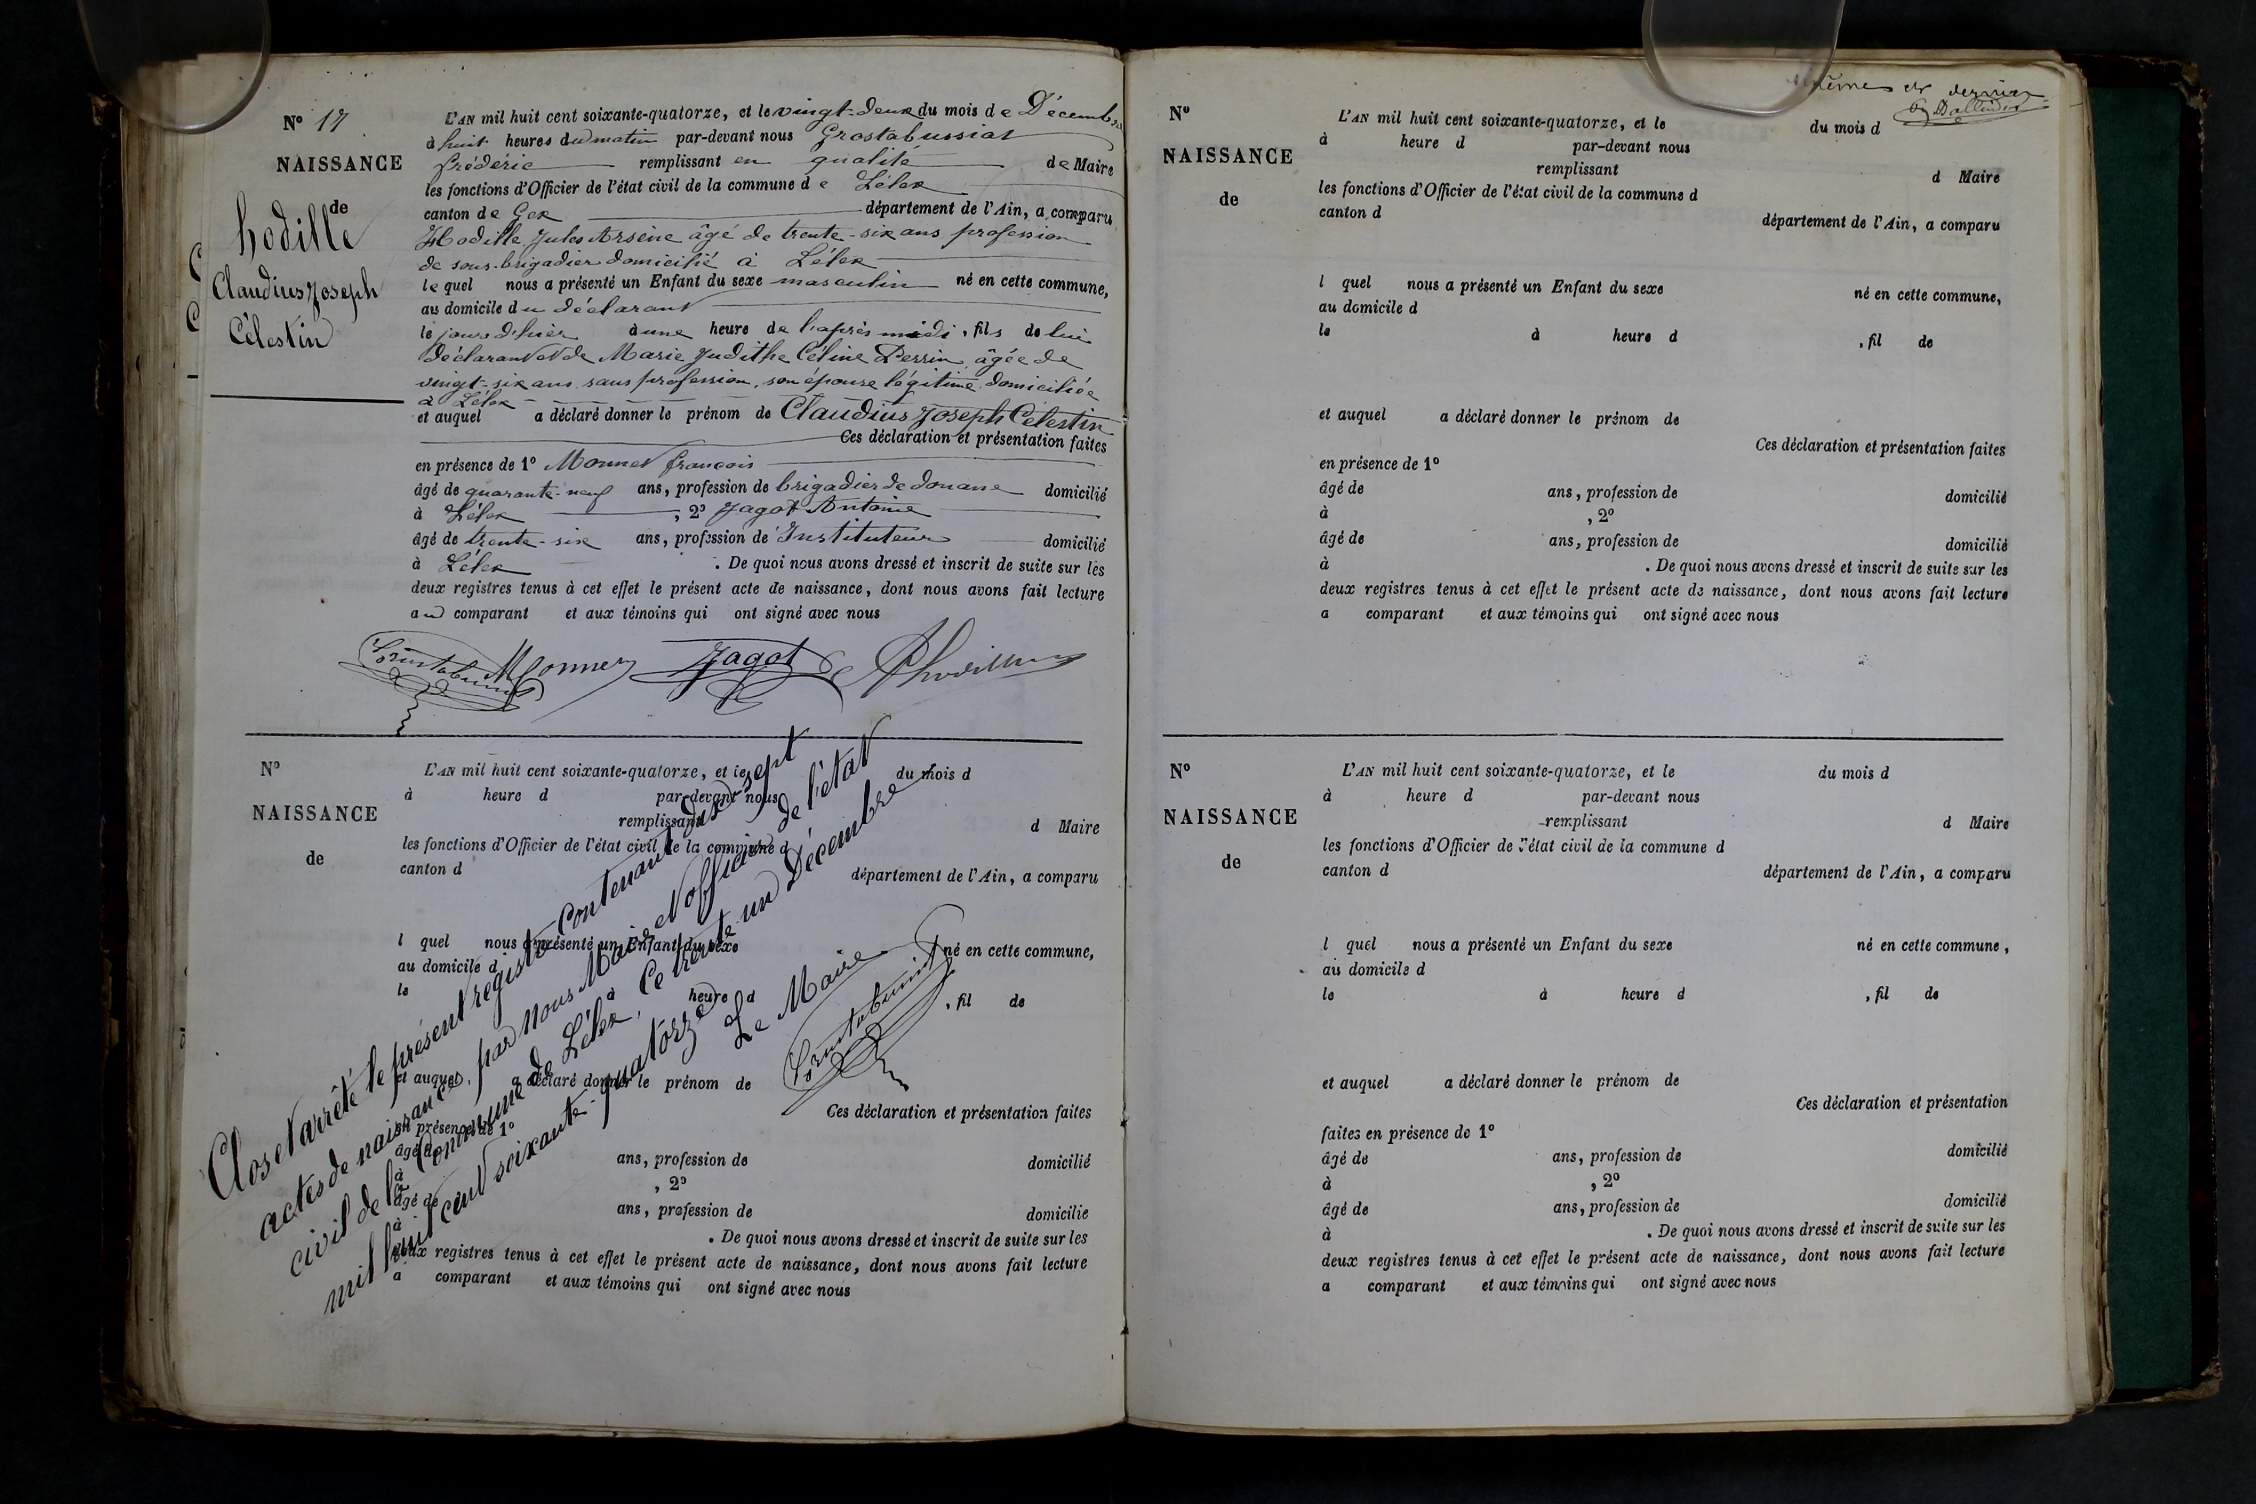 N° 17
NAISSANCE
de
hodille
Claudius Joseph
Célestin
L'AN mil huit cent soixante-quatorze, et le vingt-deux du mois de Décembre
à huit heures du matin par-devant nous Grostabussiat
frédéric remplissant en qualité de Maire
les fonctions d'Officier de l'état civil de la commune de Lélex
canton de Gex département de l'Ain, a comparu
Hodille Jules Arsène âgé de trente-six ans profession
de sous-brigadier domicilié à Lélex
lequel nous a présenté un Enfant du sexe masculin né en cette commune,
au domicile du déclarant
le jour d'hier à une heure de l'après midi, fils de lui
déclarant et de Marie Judithe Céline Perrin, âgée de
vingt-six ans sans profession, son épouse légitime domiciliée
à Lélex
et auquel a déclaré donner le prénom de Claudius Joseph Célestin
Ces déclaration et présentation faites
en présence de 1° Monnet françois
âgé de quarante-neuf ans, profession de brigadier de douane domicilié
à Lélex, 2° Jagot Antoine
âgé de trente-six ans, profession de Instituteur domicilié
à Lélex. De quoi nous avons dressé et inscrit de suite sur les
deux registres tenus à cet effet le présent acte de naissance, dont nous avons fait lecture
au comparant et aux témoins qui ont signé avec nous
Monnet Jagot
N°
NAISSANCE
de
L'AN mil huit cent soixante-quatorze, et le du mois d
à heure d par-devant nous
remplissant d Maire
les fonctions d'Officier de l'état civil de la commune d
canton d département de l'Ain, a comparu
l quel nous a présenté un Enfant du sexe né en cette commune,
au domicile d
le à heure d , fil de
et auquel a déclaré donner le prénom de
Ces déclaration et présentation faites
en présence de 1°
âgé de ans, profession de domicilié
à , 2°
âgé de ans, profession de domicilié
à . De quoi nous avons dressé et inscrit de suite sur les
deux registres tenus à cet effet le présent acte de naissance, dont nous avons fait lecture
a comparant et aux témoins qui ont signé avec nous
Clos et arrêté le présent registre contenant dix sept
actes de naissance, par nous Maire et officier de l'état
civil de la Commune de Lélex, ce trente un Décembre
mil huit cent soixante-quatorze
Le Maire
et dernier
N°
NAISSANCE
de
L'AN mil huit cent soixante-quatorze, et le du mois d
à heure d par-devant nous
remplissant d Maire
les fonctions d'Officier de l'état civil de la commune d
canton d département de l'Ain, a comparu
l quel nous a présenté un Enfant du sexe né en cette commune,
au domicile d
le à heure d , fil de
et auquel a déclaré donner le prénom de
Ces déclaration et présentation faites
en présence de 1°
âgé de ans, profession de domicilié
à , 2°
âgé de ans, profession de domicilié
à . De quoi nous avons dressé et inscrit de suite sur les
deux registres tenus à cet effet le présent acte de naissance, dont nous avons fait lecture
a comparant et aux témoins qui ont signé avec nous
N°
NAISSANCE
de
L'AN mil huit cent soixante-quatorze, et le du mois d
à heure d par-devant nous
remplissant d Maire
les fonctions d'Officier de l'état civil de la commune d
canton d département de l'Ain, a comparu
l quel nous a présenté un Enfant du sexe né en cette commune,
au domicile d
le à heure d , fil de
et auquel a déclaré donner le prénom de
Ces déclaration et présentation
faites en présence de 1°
âgé de ans, profession de domicilié
à , 2°
âgé de ans, profession de domicilié
à . De quoi nous avons dressé et inscrit de suite sur les
deux registres tenus à cet effet le présent acte de naissance, dont nous avons fait lecture
a comparant et aux témoins qui ont signé avec nous